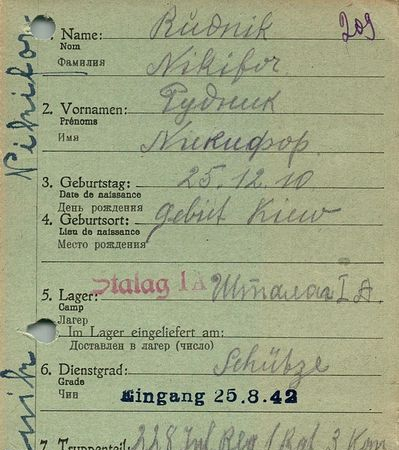 209
1. Name: Rudnik
Nom
Фамилия Nikifor
2. Vornamen: Рудник
Prénoms
Имя Никифор
3. Geburtstag: 25.12.10
Date de naissance
День рождения
4. Geburtsort: Gebiet Kiew
Lieu de naissance
Место рождения
5. Lager: Stalag IA Шталаг I A.
Camp
Лагер
Im Lager eingeliefert am:
Доставлен в лагер (число)
6. Dienstgrad: Schütze
Grade
Чин Eingang 25.8.42
7. Truppenteil: 228 Inf Reg 1 3 Kom
Nikifor